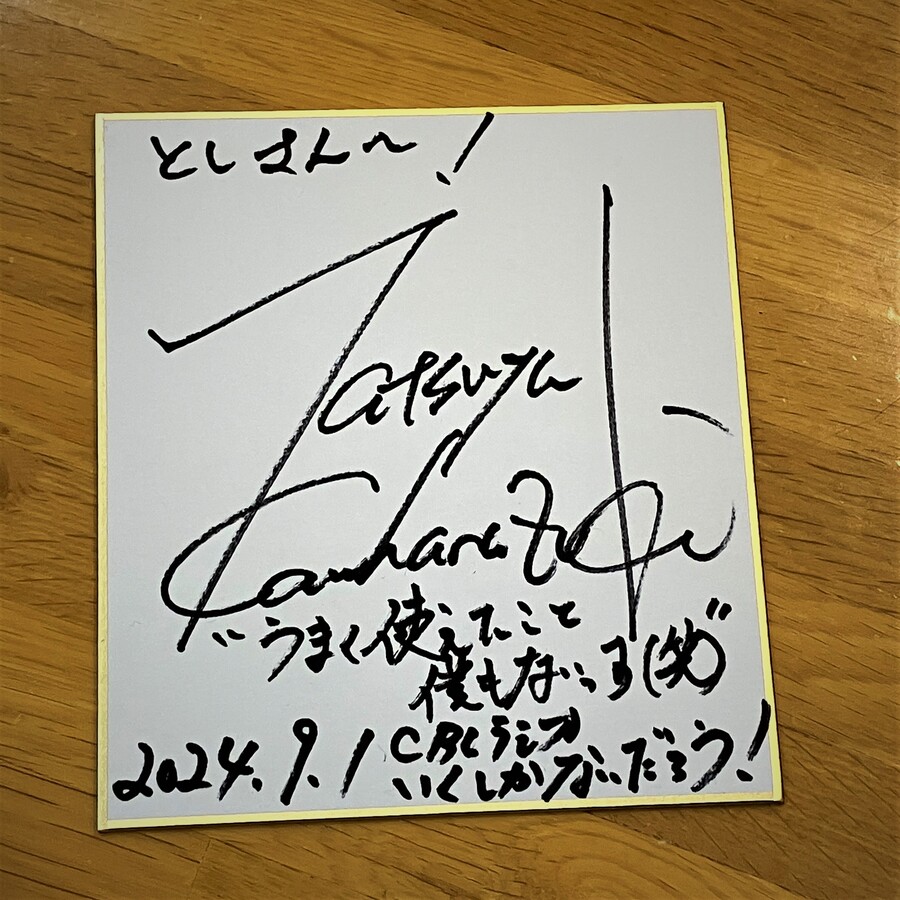 としさん〜!
Tatsuya
Kawharazuka
"うまく使えたこと
僕もないっす(笑)"
2024.9.1 CBCラジオ
いくしかないだろう!